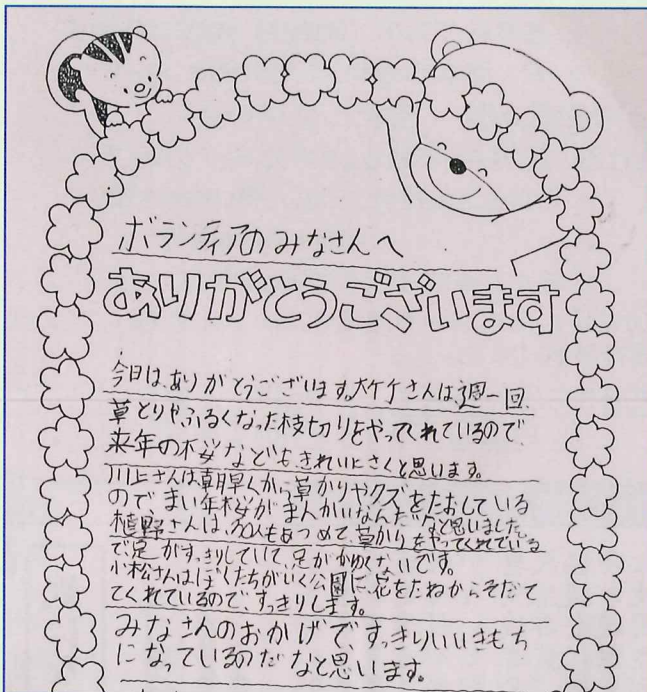 ボランティアのみなさんへ
ありがとうございます
今日は、ありがとうございます。大竹さんは週一回、
草とりやふるくなった枝切りをやってくれているので
来年の桜などもきれいにさくと思います。
川上さんは朝早くから草かりやクズをたおしている
のでまい年桜がまんかいなんだなと思いました。
植野さんは、30人もあつめて、草かりをやってくれている
で足がすっきりしていて、足がかゆくないです。
小松さんはぼくたちがいく公園に、花をたねからそだて
てくれているので、すっきりします。
みなさんのおかげで、すっきりいいきもち
になっているのだなと思います。